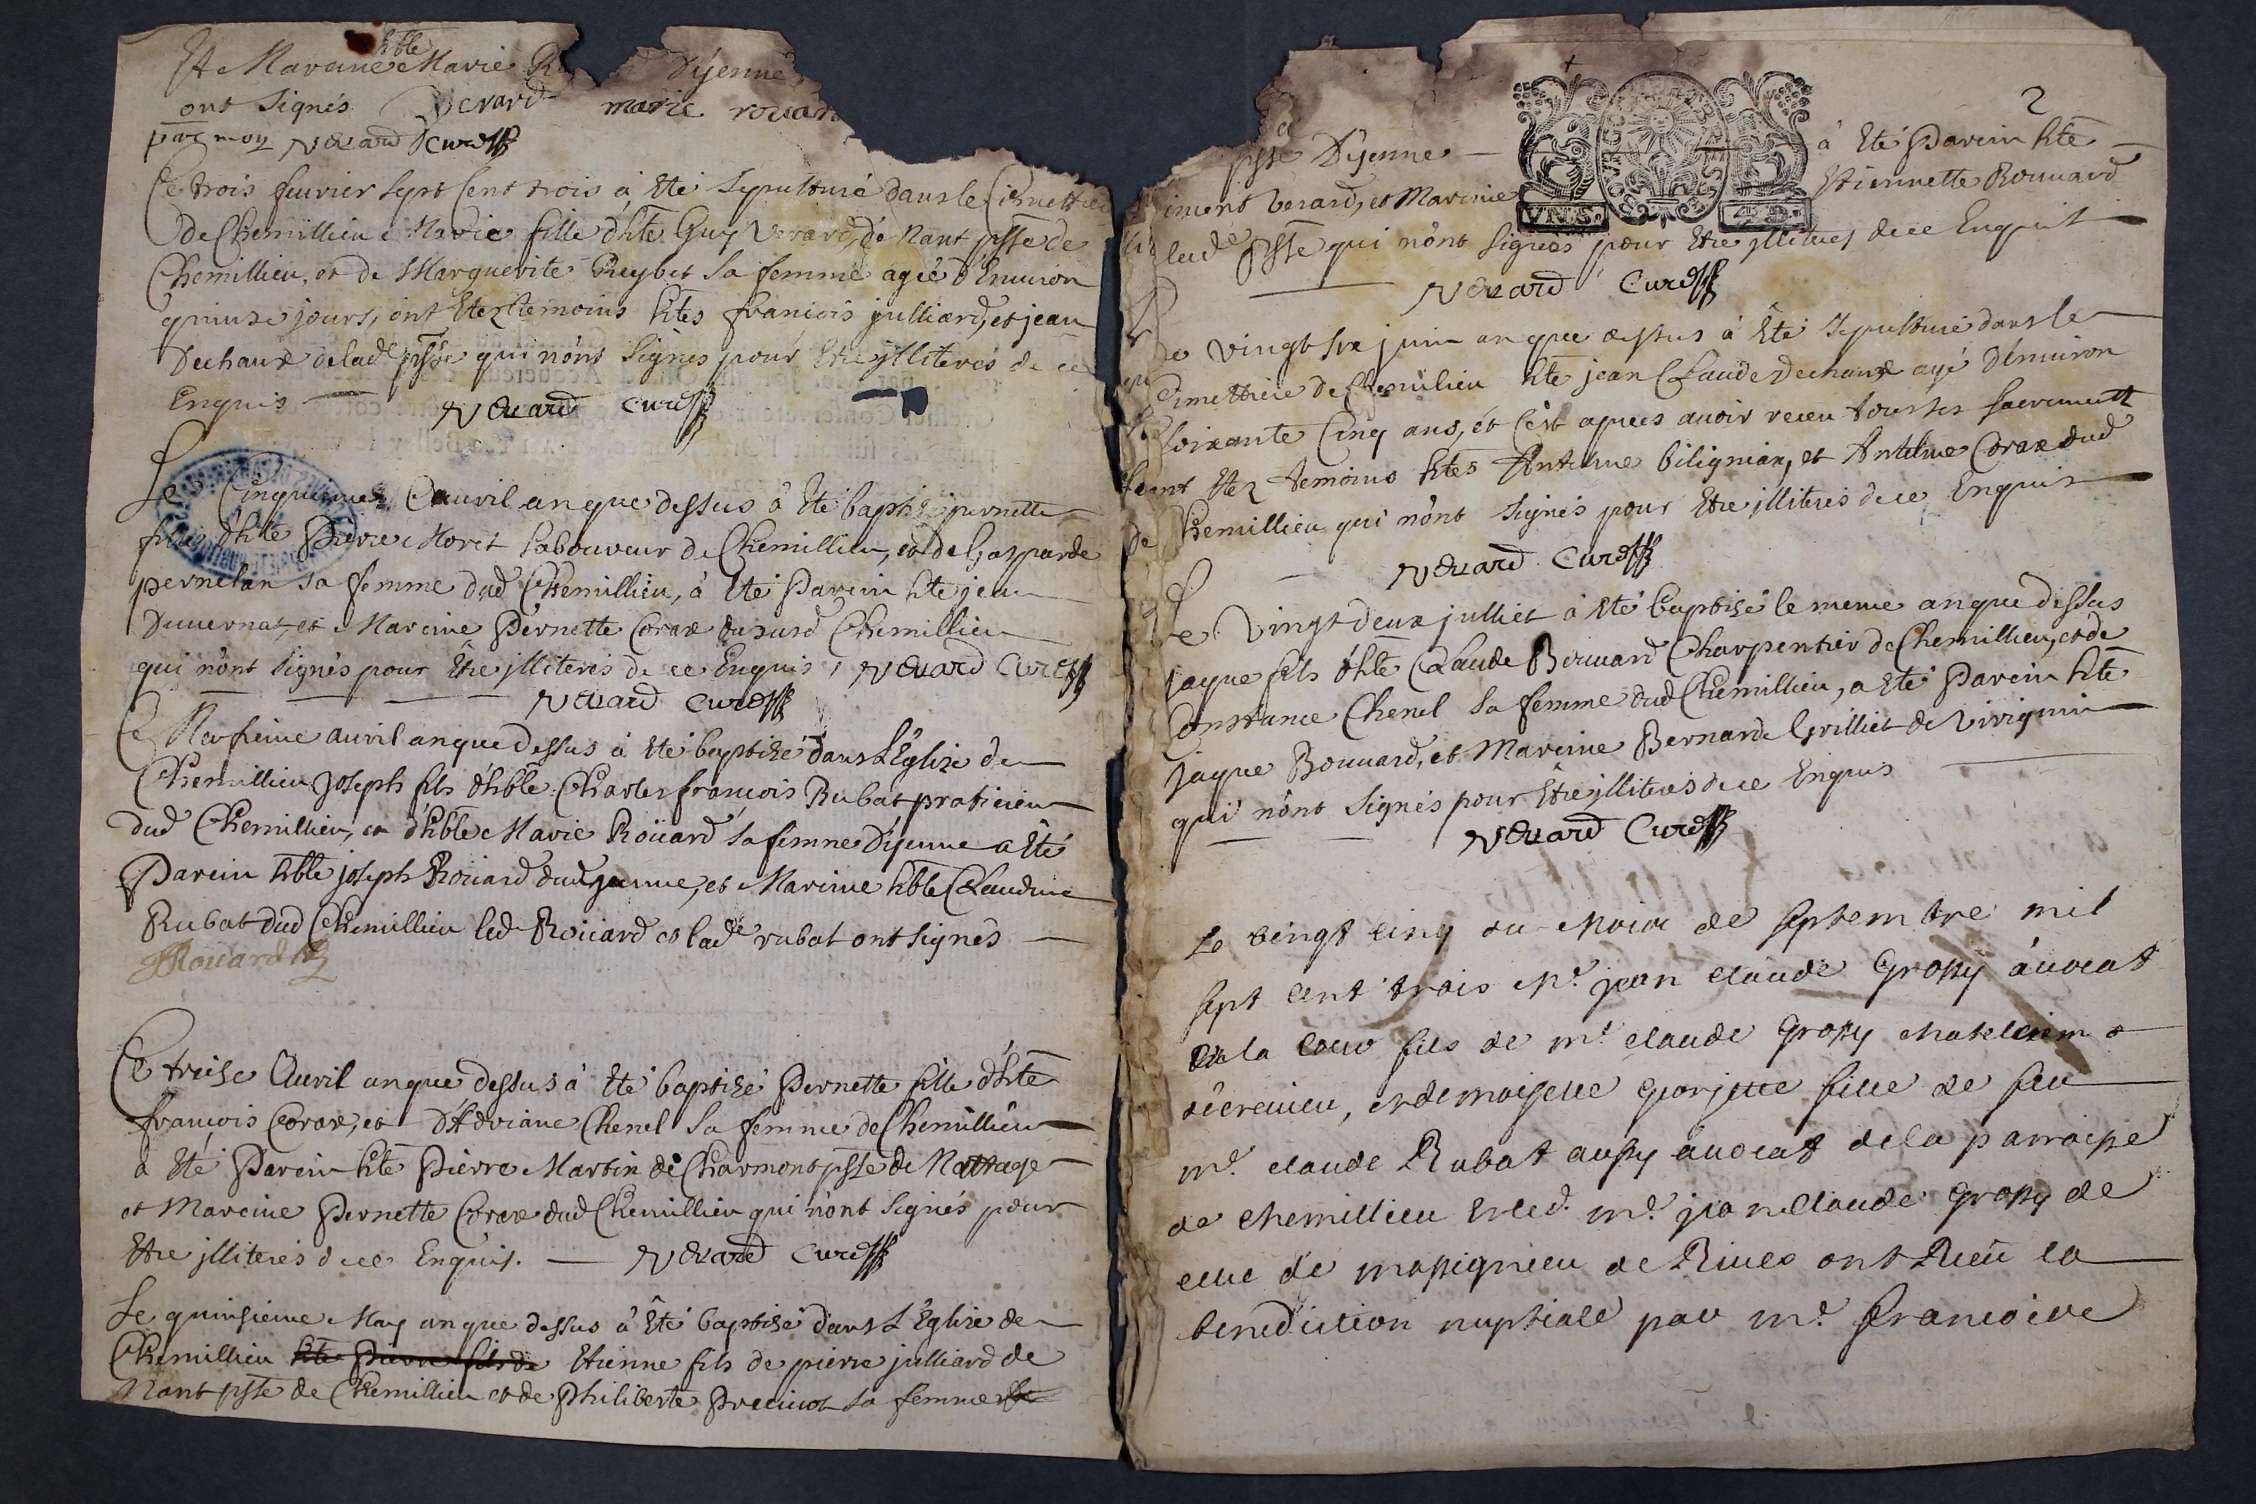 hble
Et Mareine Marie D'yenne
ont Signés Verard marie rouard
par moy N Evard Curé
Ce trois feuvrier sept cent trois à Eté Sepulturé dans le Cimettiere
de Chemillieu Marie fille d'hte Guy Verard, de Nant psse de
Chemillieu, et de Marguerite Reybet Sa femme ageé d'Environ
quinze jours, ont Etez temoins htes francois julliard, et jean
Dechaux de lad psse qui n'ont Signés pour Etre illiterés de ce
Enquis N Evard Curé
Le Cinquieme avril an que dessus à Eté baptisé pernette
fille d'hte Pierre Moret Laboureur de Chemillieu, et de Gasparde
pernelan sa femme dud Chemillieu, à Eté Parein hte jean
Duvernat, et Mareine Pernette Corax du susd Chemillieu
qui n'ont Signés pour Etre illiterés de ce Enquis, N Evard Curé
N Evard Curé
Ce Neufieme avril an que dessus à Eté baptisé dans L'Eglise de
Chemillieu Joseph fils d'hble Charles francois Rubat praticien
dud Chemillieu, et d'hble Marie Roüard sa femme D'yenne a Eté
Parein hble joseph Roüard dud yenne, et Mareine hble Claudine
Rubat dud Chemillieu led Roüard et lade rubat ont signés
JRoüard
Ce treise Avril an que dessus à Eté baptisé Pernette fille d'hte
francois Corax, et D'Adriane Chenel Sa femme de Chemillieu
à Eté Parein hte Pierre Martin de Charmont psse de Nattage
et Mareine Pernette Corax dud Chemillieu qui n'ont Signés pour
Etre illiterés de ce Enquis. N Evard Curé
Le quinsieme May an que dessus à Eté baptisé dans L'Eglise de
Chemillieu hte Pierre fils de Etienne fils de pierre julliard de
Nant psse de Chemillieu et de Philiberte Precinot sa femme
2
psse D'yenne à Eté Parein hte
Verard, et Mareine Etiennette Rouuard
VN.S. 4.D.
lade psse qui n'ont Signés pour Etre illiterés de ce Enquis
N Evard Curé
Le vingt six juin an que dessus à Eté Sepulturé dans le
Cimettiere de Chemillieu hte jean Claude Dechaux agé D'Environ
soixante Cinq ans, et C'est apres avoir receu tous ses sacrements
ont Etez temoins htes Antelme bilignian, et Antelme Corax dud
de Chemillieu qui n'ont Signés pour Etre illiterés de ce Enquis
N Evard Curé
Le Vingt deux julliet à Eté baptisé le meme an que dessus
jaque fils d'hte Claude Bouuard Charpentier de Chemillieu, et de
Constance Chenel Sa femme dud Chemillieu, a Eté Parein hte
jaque Bouuard, et Mareine Bernarde Grilliet de Virignin
qui n'ont Signés pour Etre illiterés de ce Enquis
N Evard Curé
Le vingt cinq du Moiæ de septembre mil
sept cent trois Mr. jean claude Grossy auocat
en la cour fils de mr. claude Grossy chatelain
, et demoiselle Georjette fille de feu
mr. claude Rubat aussy auocat de la parroisse
de chemillieu et led. mr. jean claude Grossy de
celle de massignieu de Riues ont Receu la
benediction nuptiale par mr. Francoise